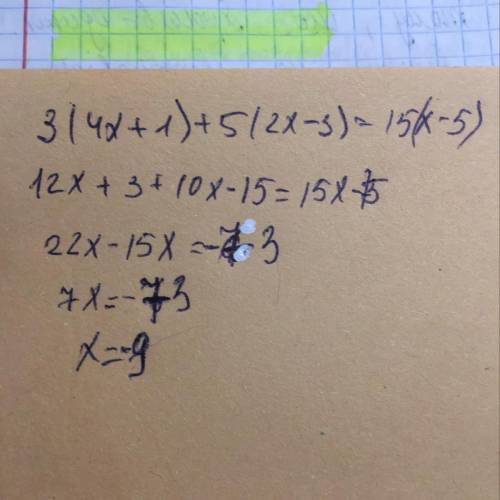 3(4x+1)+5(2x-3)=15(x-5)
12x+3+10x-15=15x-75
22x-15x=-73
7x=-73
x=-9